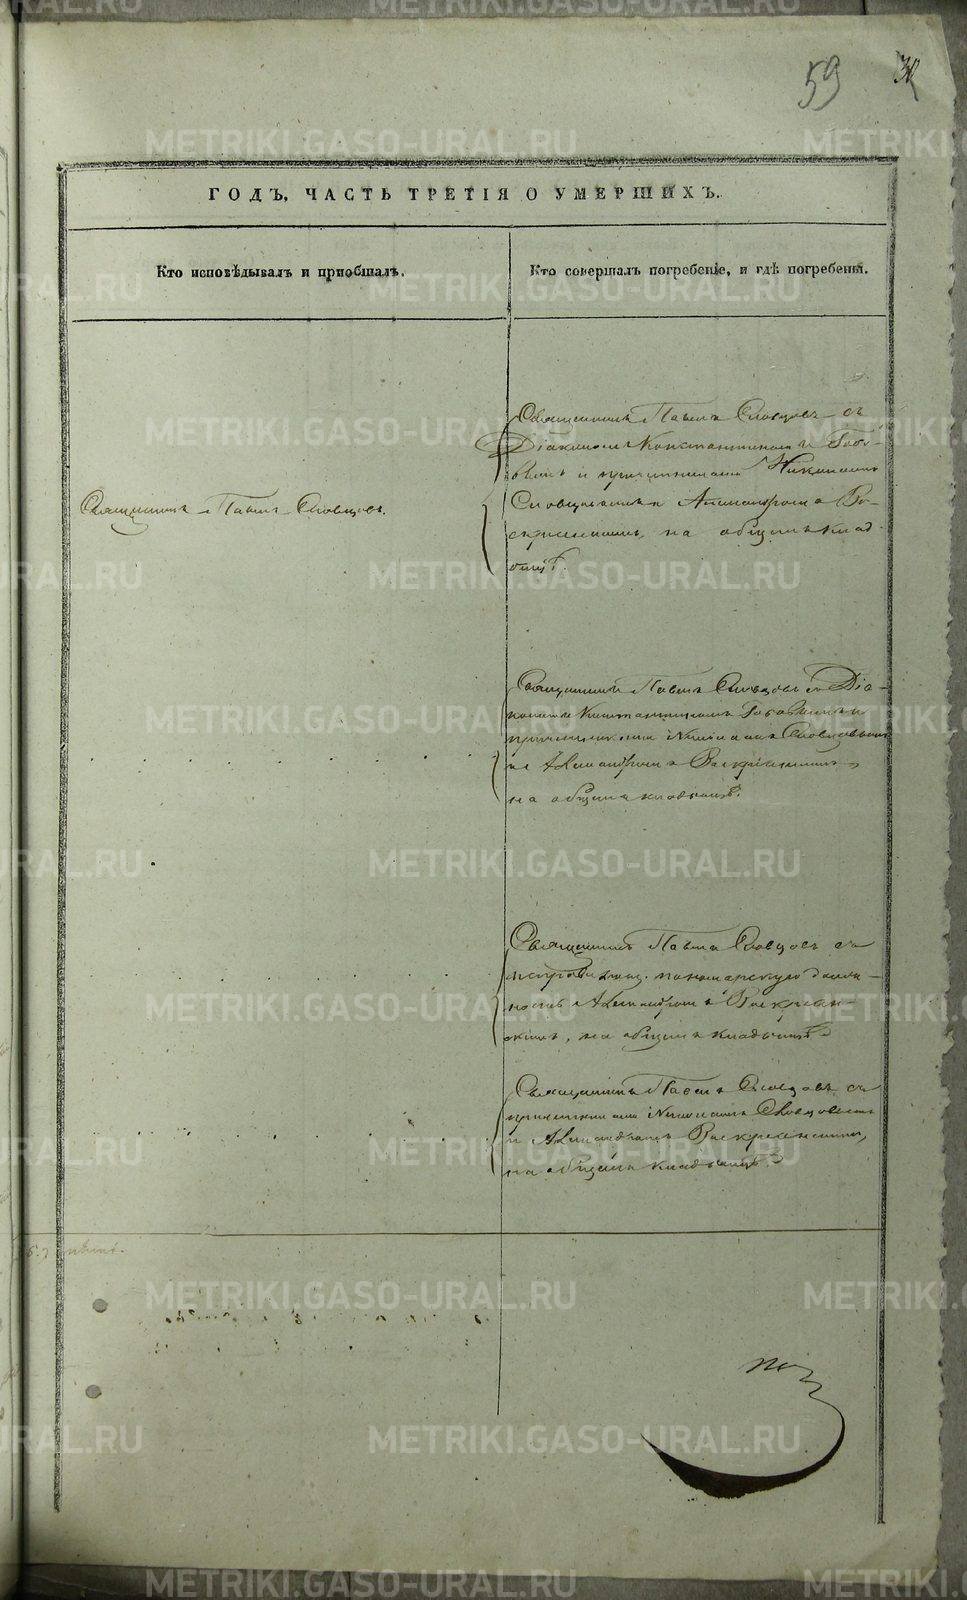 59
ГОДЪ, ЧАСТЬ ТРЕТІЯ О УМЕРШИХЪ.
Кто исповѣдывалъ и пріобщалъ.
Кто совершалъ погребеніе, и гдѣ погребены.
Священникъ Павелъ Словцовъ.
Священникъ Павелъ Словцовъ съ
Діакономъ Константиномъ
и причетниками Николаемъ
Словцовымъ и Александромъ Во-
скресенскимъ, на общемъ клад-
бищѣ.
Священникъ Павелъ Словцовъ съ Діа-
кономъ Константиномъ и
причетниками Николаемъ Словцовымъ
и Александромъ Воскресенскимъ,
на общемъ кладбищѣ.
Священникъ Павелъ Словцовъ съ
исправляющ. пономарскую долж-
ность Александромъ Воскресен-
скимъ, на общемъ кладбищѣ.
Священникъ Павелъ Словцовъ съ
причетниками Николаемъ Словцовымъ
и Александромъ Воскресенскимъ,
на общемъ кладбищѣ.
METRIKI.GASO-URAL.RU